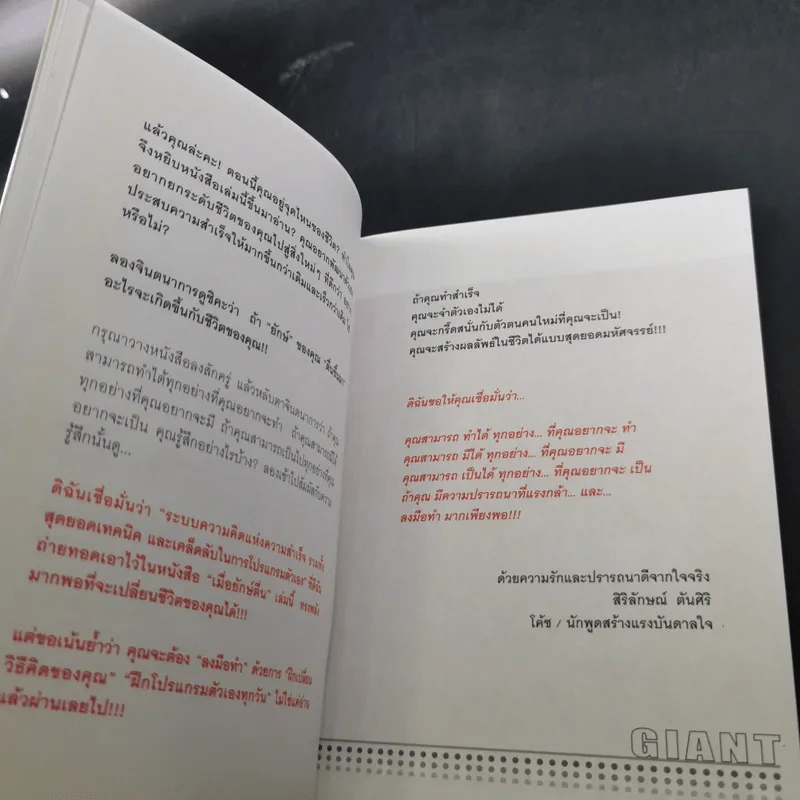 แล้วคุณล่ะคะ! ตอนนี้คุณอยู่จุดไหนของชีวิต?
จึงหยิบหนังสือเล่มนี้ขึ้นมาอ่าน? คุณอยากพัฒนา
อยากยกระดับชีวิตของคุณไปสู่สิ่งใหม่ๆ ที่ดีกว่า
ประสบความสำเร็จให้มากขึ้นกว่าเดิมและเร็วกว่าเดิม
หรือไม่?
ลองจินตนาการดูซิคะว่า ถ้า "ยักษ์" ของคุณ "ตื่นขึ้นมา"
อะไรจะเกิดขึ้นกับชีวิตของคุณ!!
กรุณาวางหนังสือลงสักครู่ แล้วหลับตาจินตนาการว่า ถ้าคุณ
สามารถทำได้ทุกอย่างที่คุณอยากจะทำ ถ้าคุณสามารถมีได้
ทุกอย่างที่คุณอยากจะมี ถ้าคุณสามารถเป็นไปทุกอย่างที่คุณ
อยากจะเป็น คุณรู้สึกอย่างไรบ้าง? ลองเข้าไปสัมผัสกับความ
รู้สึกนั้นดู...
ดิฉันเชื่อมั่นว่า "ระบบความคิดแห่งความสำเร็จ รวมทั้ง
สุดยอดเทคนิค และเคล็ดลับในการโปรแกรมตัวเอง" ที่ดิฉัน
ถ่ายทอดเอาไว้ในหนังสือ "เมื่อยักษ์ตื่น" เล่มนี้ ทรงพลัง
มากพอที่จะเปลี่ยนชีวิตของคุณได้!!!
แต่ขอเน้นย้ำว่า คุณจะต้อง "ลงมือทำ" ด้วยการ "ฝึกเปลี่ยน
วิธีคิดของคุณ" "ฝึกโปรแกรมตัวเองทุกวัน" ไม่ใช่แค่อ่าน
แล้วผ่านเลยไป!!!
ถ้าคุณทำสำเร็จ
คุณจะจำตัวเองไม่ได้
คุณจะกรี๊ดสนั่นกับตัวตนคนใหม่ที่คุณจะเป็น!
คุณจะสร้างผลลัพธ์ในชีวิตได้แบบสุดยอดมหัศจรรย์!!!
ดิฉันขอให้คุณเชื่อมั่นว่า...
คุณสามารถ ทำได้ ทุกอย่าง... ที่คุณอยากจะ ทำ
คุณสามารถ มีได้ ทุกอย่าง... ที่คุณอยากจะ มี
คุณสามารถ เป็นได้ ทุกอย่าง... ที่คุณอยากจะ เป็น
ถ้าคุณ มีความปรารถนาที่แรงกล้า... และ...
ลงมือทำ มากเพียงพอ!!!
ด้วยความรักและปรารถนาดีจากใจจริง
สิริลักษณ์ ตันศิริ
โค้ช / นักพูดสร้างแรงบันดาลใจ
GIANT